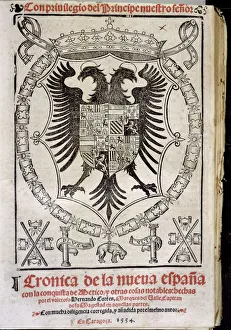 Con privilegio del Principe nuestro señor
Cronica de la nueva españa
con la conquista de Mexico, y otras cosas notables: hechas
por el valeroso Hernando Cortes, Marques del Valle, Capitan
de su Magestad en aquellas partes.
Con mucha diligencia corregida, y añadida por el mesmo autor.
En Çaragoça. 1554.